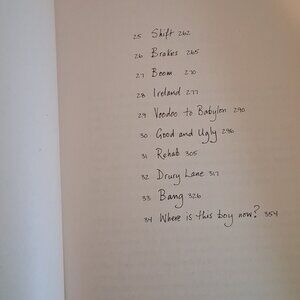 25 Shift 262
26 Brakes 265
27 Boom 270
28 Ireland 277
29 Voodoo to Babylon 290
30 Good and Ugly 296
31 Rehab 305
32 Drury Lane 317
33 Bang 326
34 Where is this boy now? 354